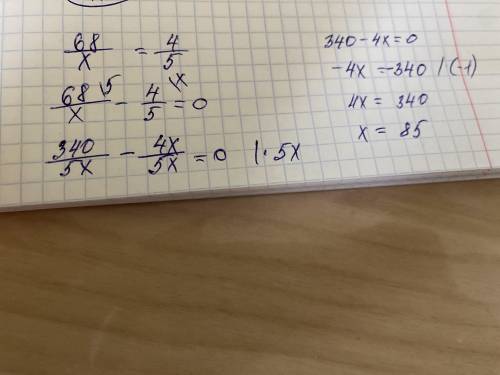 68/x = 4/5
68\5/x - 4\x/5 = 0
340/5x - 4x/5x = 0 |· 5x
340 - 4x = 0
-4x = -340 | (-1)
4x = 340
x = 85